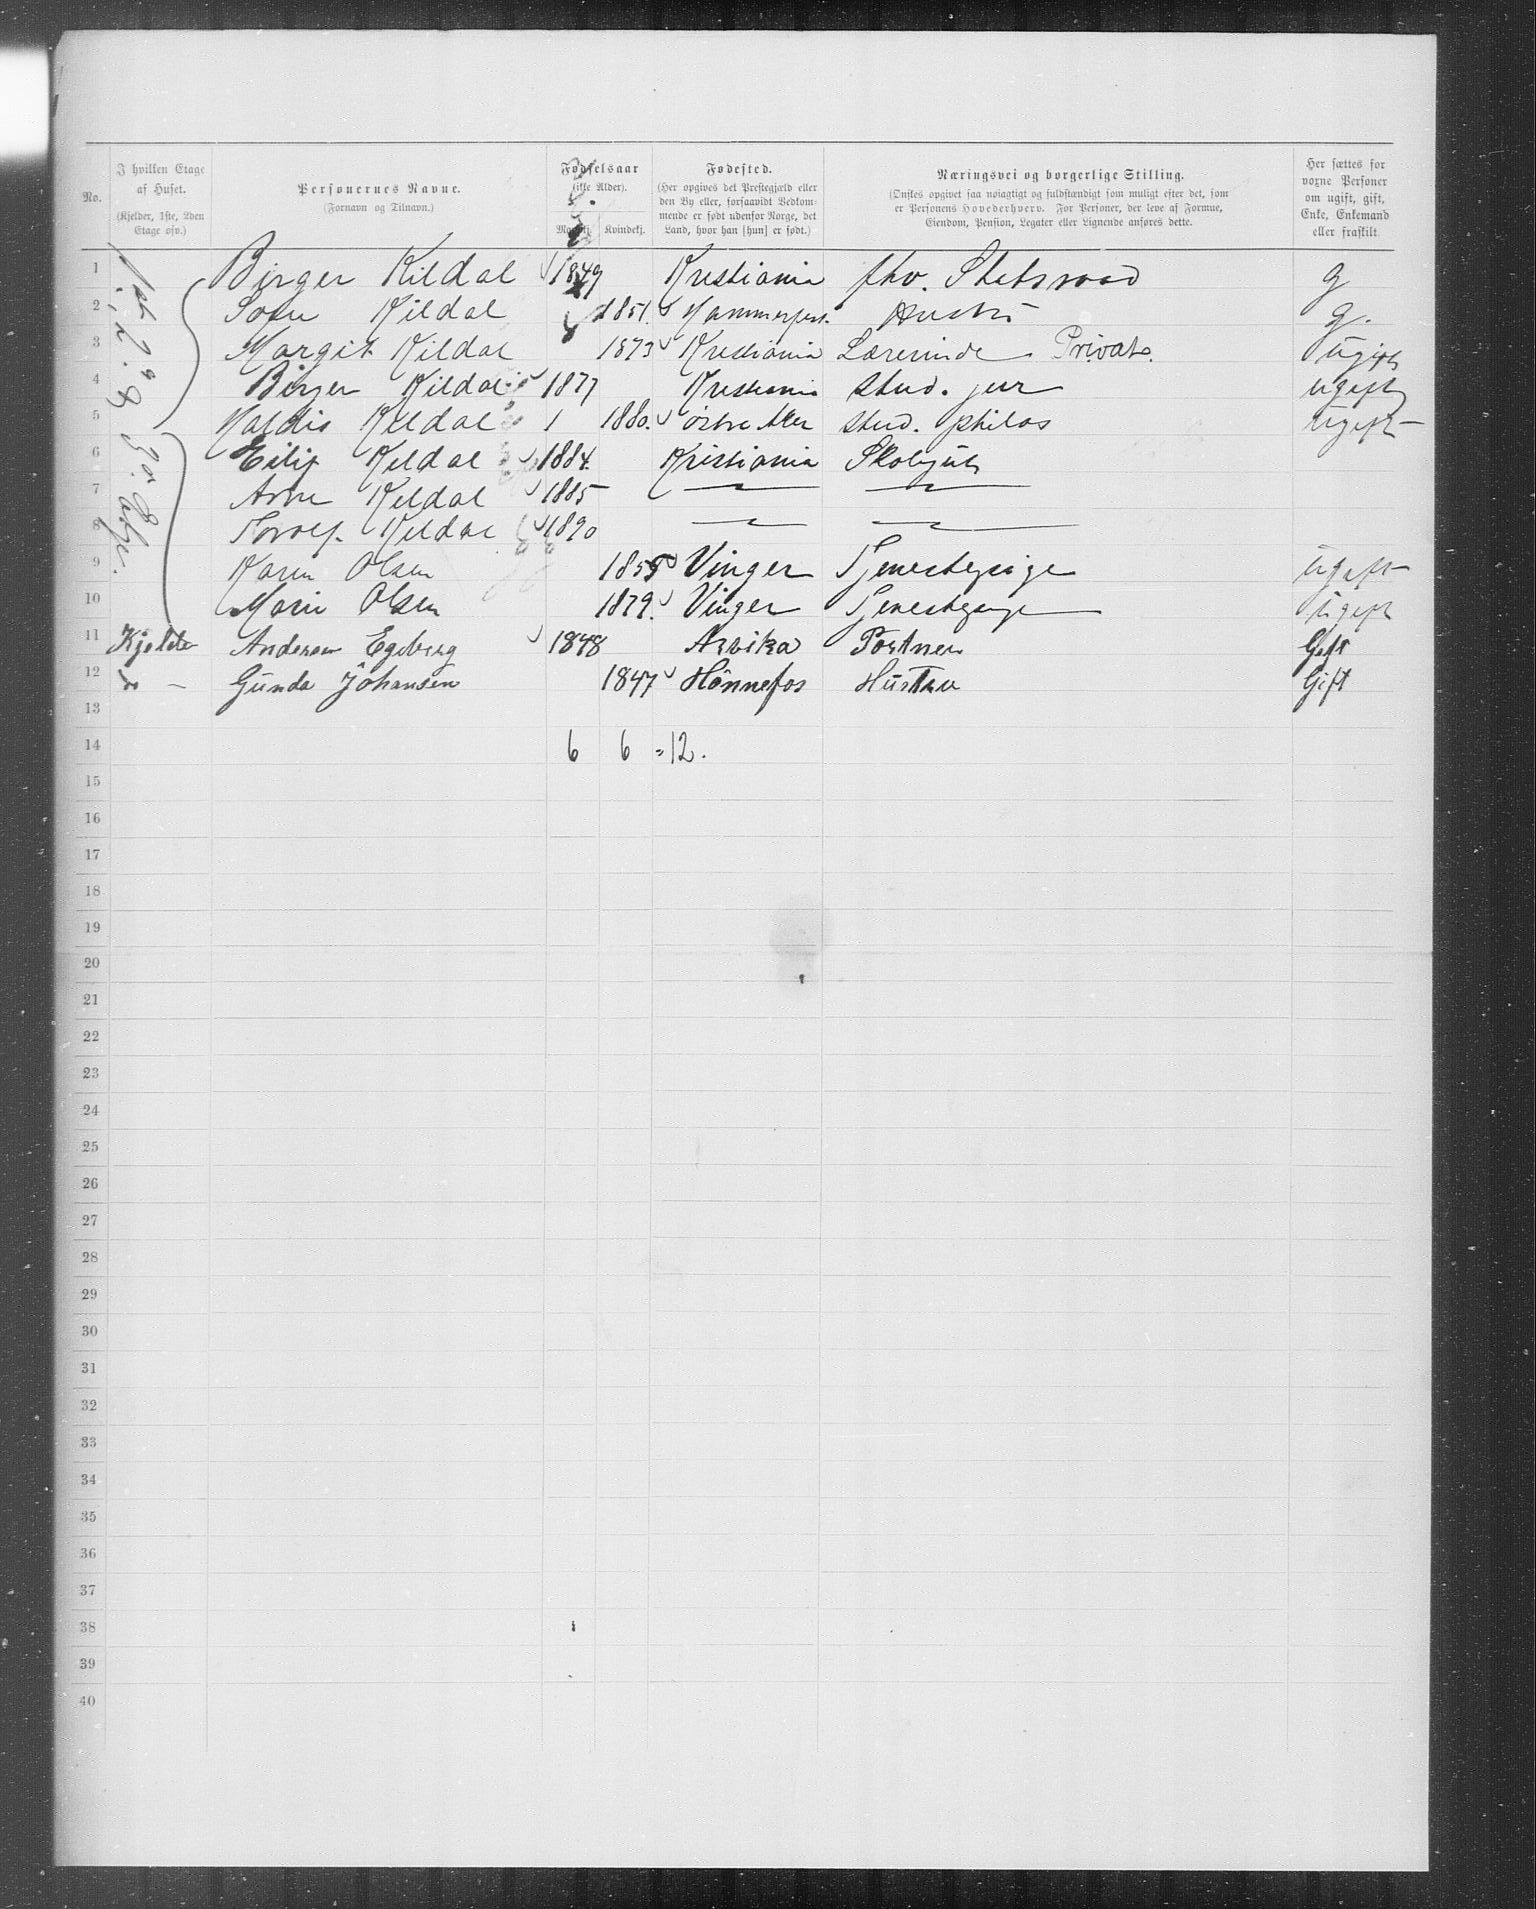 No.
I hvilken Etage af Huset. (Kjelder, 1ste, 2den Etage osv.)
Personernes Navne. (Fornavn og Tilnavn.)
Fødselsaar (ikke Alder).
Mandkj. Kvindekj.
Fødested. (Her opgives det Prestegjæld eller den By eller, forsaavidt Vedkommende er født udenfor Norge, det Land, hvor han [hun] er født.)
Næringsvei og borgerlige Stilling. (Ønskes opgivet saa nøiagtigt og fuldstændigt som muligt efter det, som er Personens Hovederhverv. For Personer, der leve af Formue, Eiendom, Pension, Legater eller Lignende anføres dette.)
Her sættes for voxne Personer om ugift, gift, Enke, Enkemand eller fraskilt.
1 Birger Kildal 1849 Kristiania fhv. Statsraad g
2 Kildal 1851. Hammerfest. Hustru g.
3 Margit Kildal 1873 Kristiania Lærerinde Privat. ugift
4 Birger Kildal 1877 Kristiania stud. jur ugift
5 Haldis Kildal 1880. østre Aker stud. philos ugift
6 Eilif Kildal 1884. Kristiania Skolegut
7 Arne Kildal 1885 — —
8 Kildal 1890 — —
9 Karen Olsen 1855 Vinger Tjenestepige ugift
10 Marie Olsen 1879. Vinger Tjenestepige ugift
11 Kjelder Anderson Egeberg 1848 Arvika Portner Gift
12 do — Gunda Johansen 1847 Hønnefos Hustru Gift
13
14 6 6 = 12.
15
16
17
18
19
20
21
22
23
24
25
26
27
28
29
30
31
32
33
34
35
36
37
38
39
40